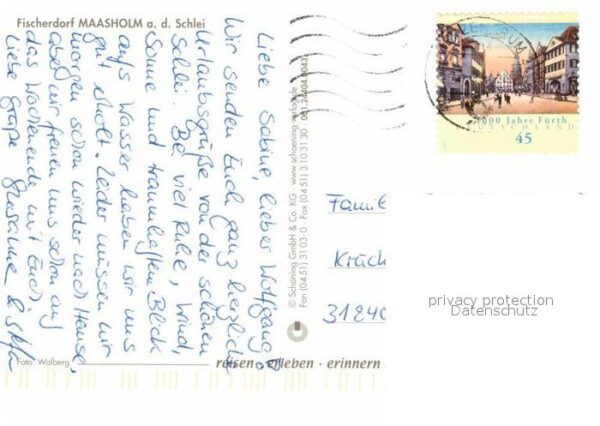 Fischerdorf MAASHOLM a. d. Schlei
Liebe Sabine, lieber Wolfgang,
Wir senden Euch ganz herzliche
Urlaubsgrüße von der schönen
Schlei. Bei viel Ruhe, Wind,
Sonne und traumhaftem Blick
aufs Wasser haben wir uns
gut erholt. Leider müssen wir
morgen schon wieder nach Hause,
aber wir freuen uns schon auf
das Wochenende mit Euch!
Liebe Grüße Susanne &
Foto: Wolberg
© Schöning GmbH & Co. KG · www.schoening-verlag.de
Fon (04 51) 3 10 3-0 · Fax (04 51) 3 10 31 30
reisen · erleben · erinnern
1000 Jahre Fürth
DEUTSCHLAND
45
Famil
Krüch
31840
privacy protection
Datenschutz